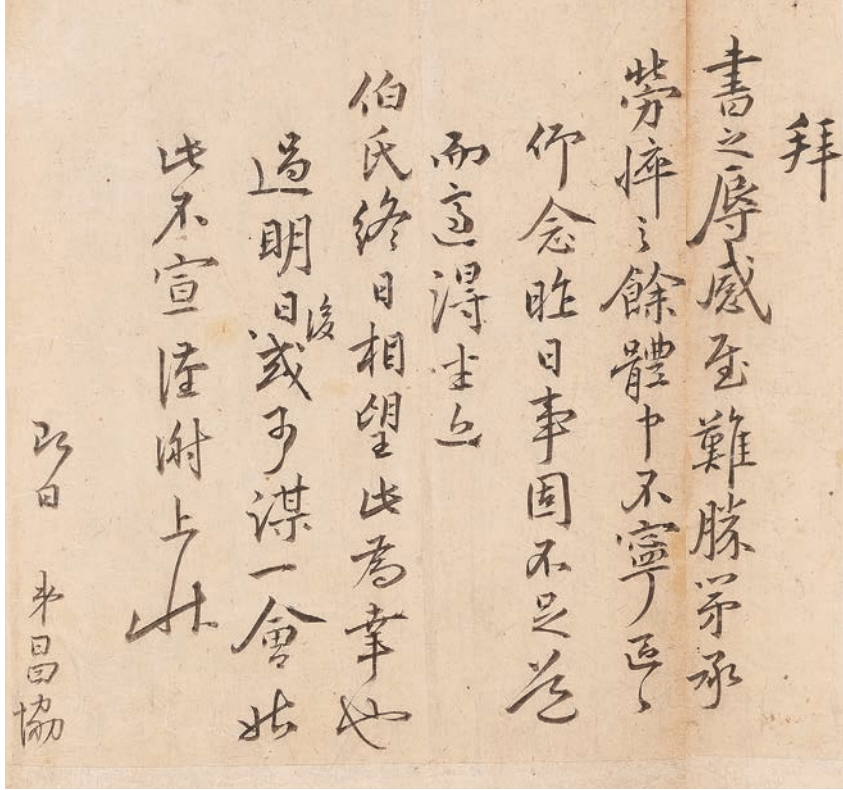 拜
書之辱感至難勝第承
勞悴之餘體中不寧區〻
仰念昨日事固不足道
而適得坐近
伯氏終日相望此爲幸也
過明日後或可謀一會姑
此不宣謹謝上狀
即日 弟昌協